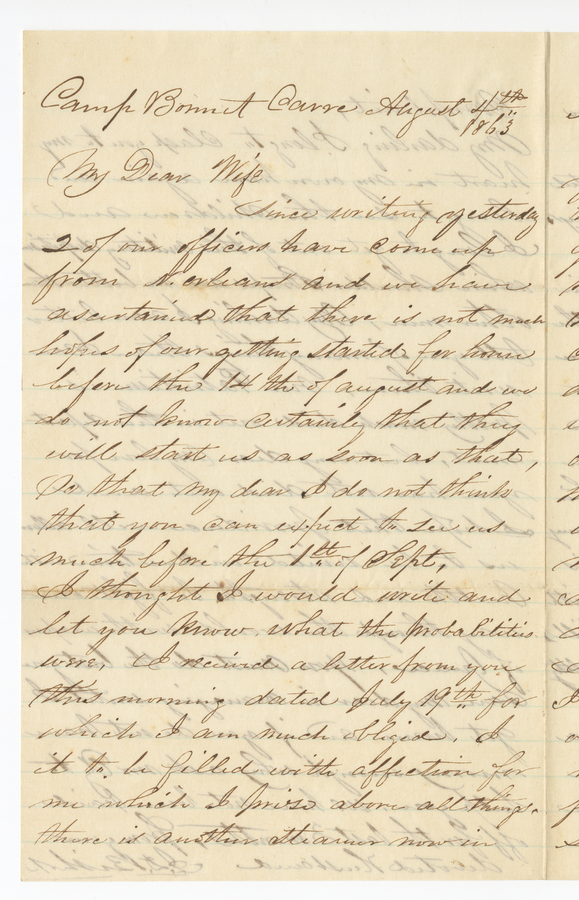 Camp Bonnet Carre August 4th
1863
My Dear Wife
Since writing yesterday
2 of our officers have come up
from N. orleans and we have
ascertained that there is not much
hopes of our getting started for home
before the 14th of august and we
do not know certainly that they
will start us as soon as that,
So that my dear I do not think
that you can expect to see us
much before the 1st of Sept,
I thought I would write and
let you know what the probabilities
were, I received a letter from you
this morning dated July 19th for
which I am much obliged. I
it to be filled with affection for
me which I prise above all things.
there is another steamer now in